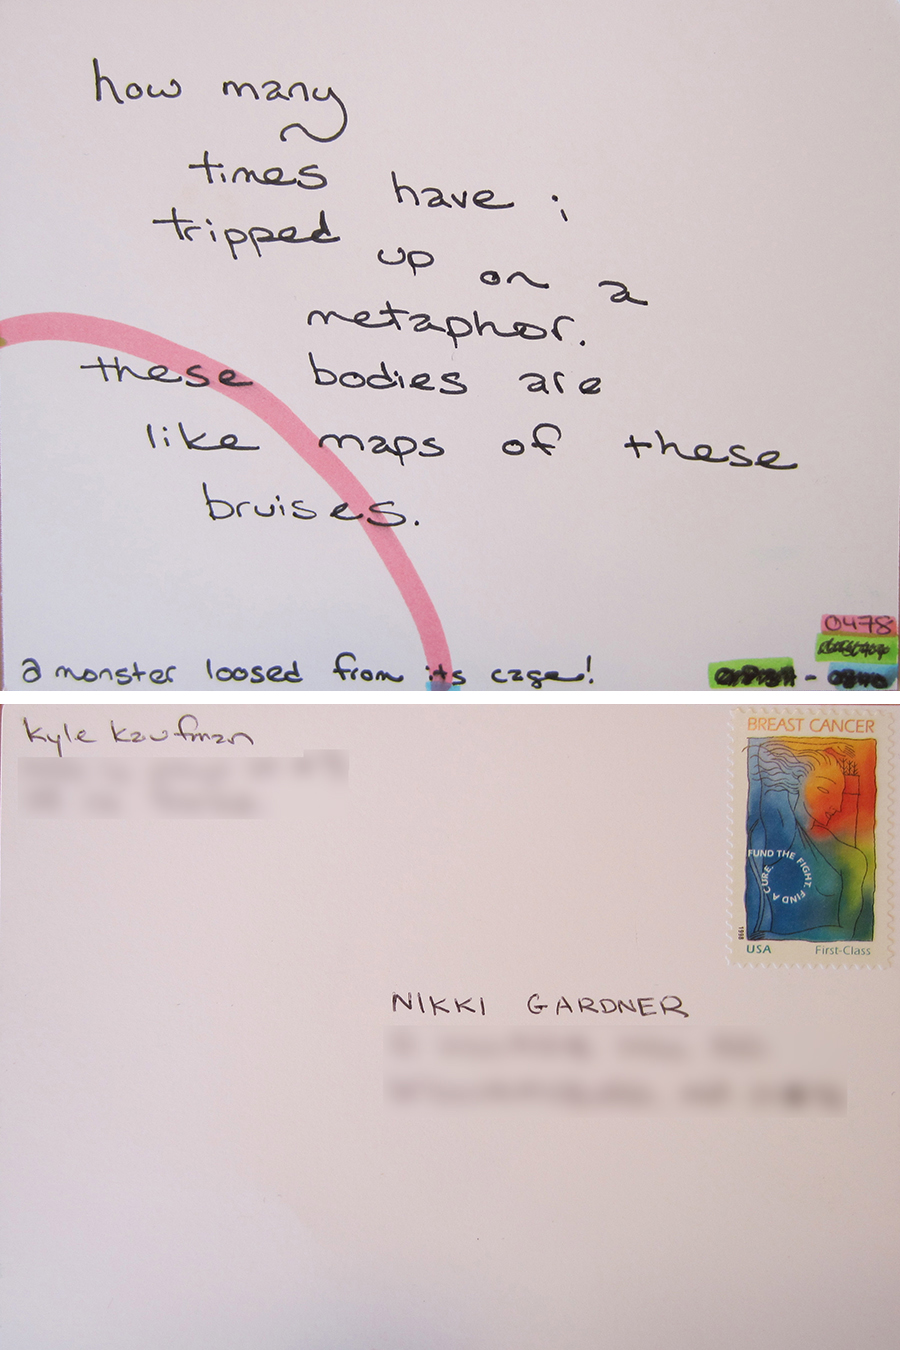 how many
times have i
tripped up on a
metaphor.
these bodies are
like maps of these
bruises.
0478
a monster loosed from its cage!
Kyle Kaufman
BREAST CANCER
FUND THE FIGHT. FIND A CURE
1998
USA First-Class
NIKKI GARDNER